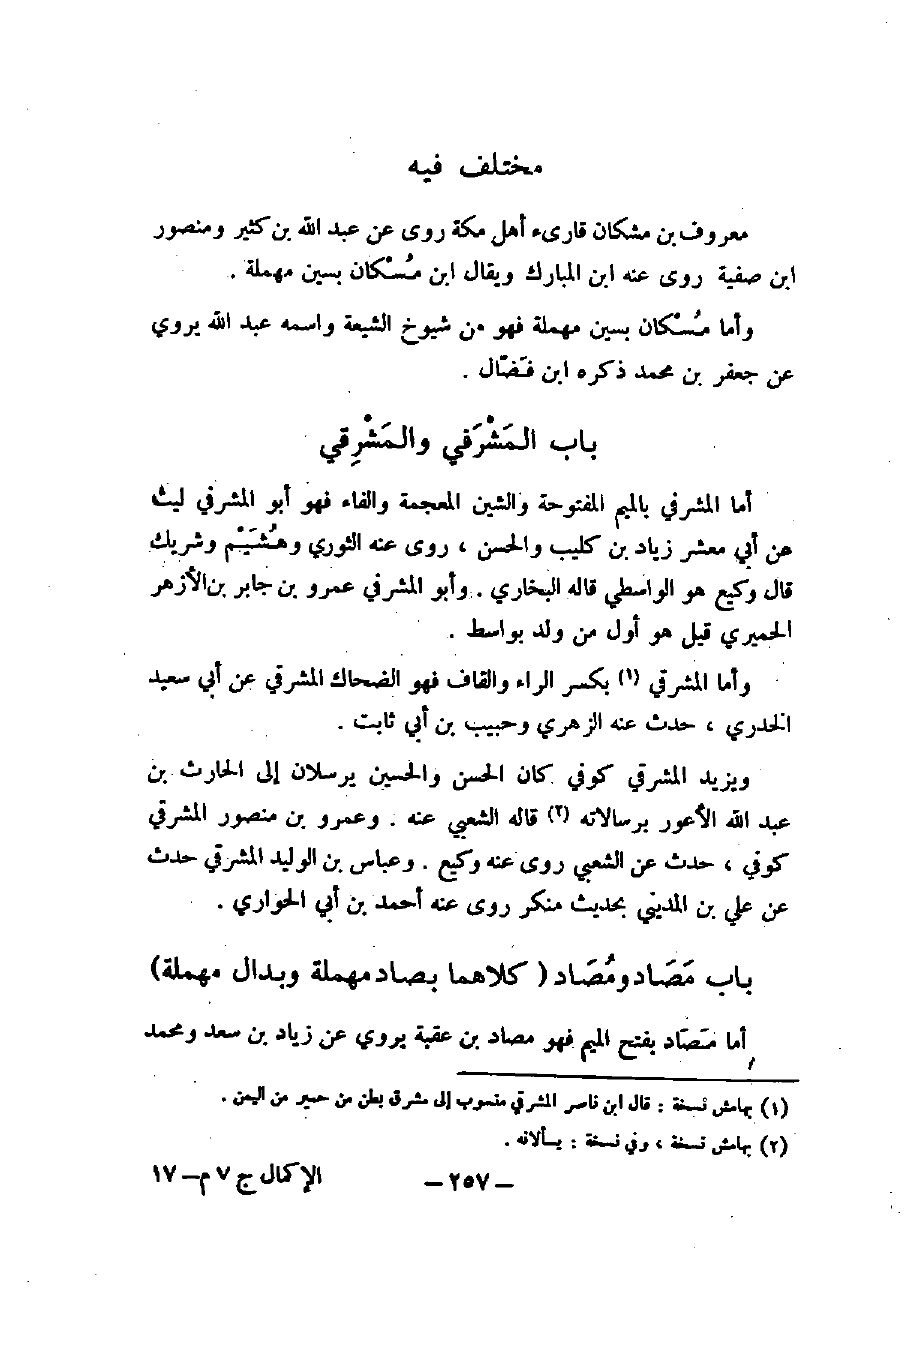 مختلف فيه
معروف بن مشكان قارىء أهل مكة روى عن عبد الله بن كثير ومنصور
ابن صفية روى عنه ابن المبارك ويقال ابن مُسْكان بسين مهملة .
وأما مُسْكان بسين مهملة فهو من شيوخ الشيعة واسمه عبد الله يروي
عن جعفر بن محمد ذكره ابن فَضّال .
باب المَشْرَفي والمَشْرِقي
أما المشرفي بالميم المفتوحة والشين المعجمة والفاء فهو أبو المشرفي ليث
عن أبي معشر زياد بن كليب والحسن ، روى عنه الثوري وهُشَيْم وشريك
قال وكيع هو الواسطي قاله البخاري . وأبو المشرفي عمرو بن جابر بن الأزهر
الحميري قيل هو أول من ولد بواسط .
وأما المشرقي (١) بكسر الراء والقاف فهو الضحاك المشرقي عن أبي سعيد
الخدري ، حدث عنه الزهري وحبيب بن أبي ثابت .
ويزيد المشرقي كوفي كان الحسن والحسين يرسلان إلى الحارث بن
عبد الله الأعور برسالاته (٢) قاله الشعبي عنه . وعمرو بن منصور المشرقي
كوفي ، حدث عن الشعبي روى عنه وكيع . وعباس بن الوليد المشرقي حدث
عن علي بن المديني بحديث منكر روى عنه أحمد بن أبي الحواري .
باب مَصَاد ومُصَاد ( كلاهما بصاد مهملة وبدال مهملة )
أما مَصَاد بفتح الميم فهو مصاد بن عقبة يروي عن زياد بن سعد ومحمد
(١) بهامش نسخة : قال ابن ناصر المشرقي منسوب إلى مشرق بطن من حمير من اليمن .
(٢) بهامش نسخة ، وفي نسخة : يسألانه .
– ٢٥٧ –
الإكمال ج ٧ م – ١٧